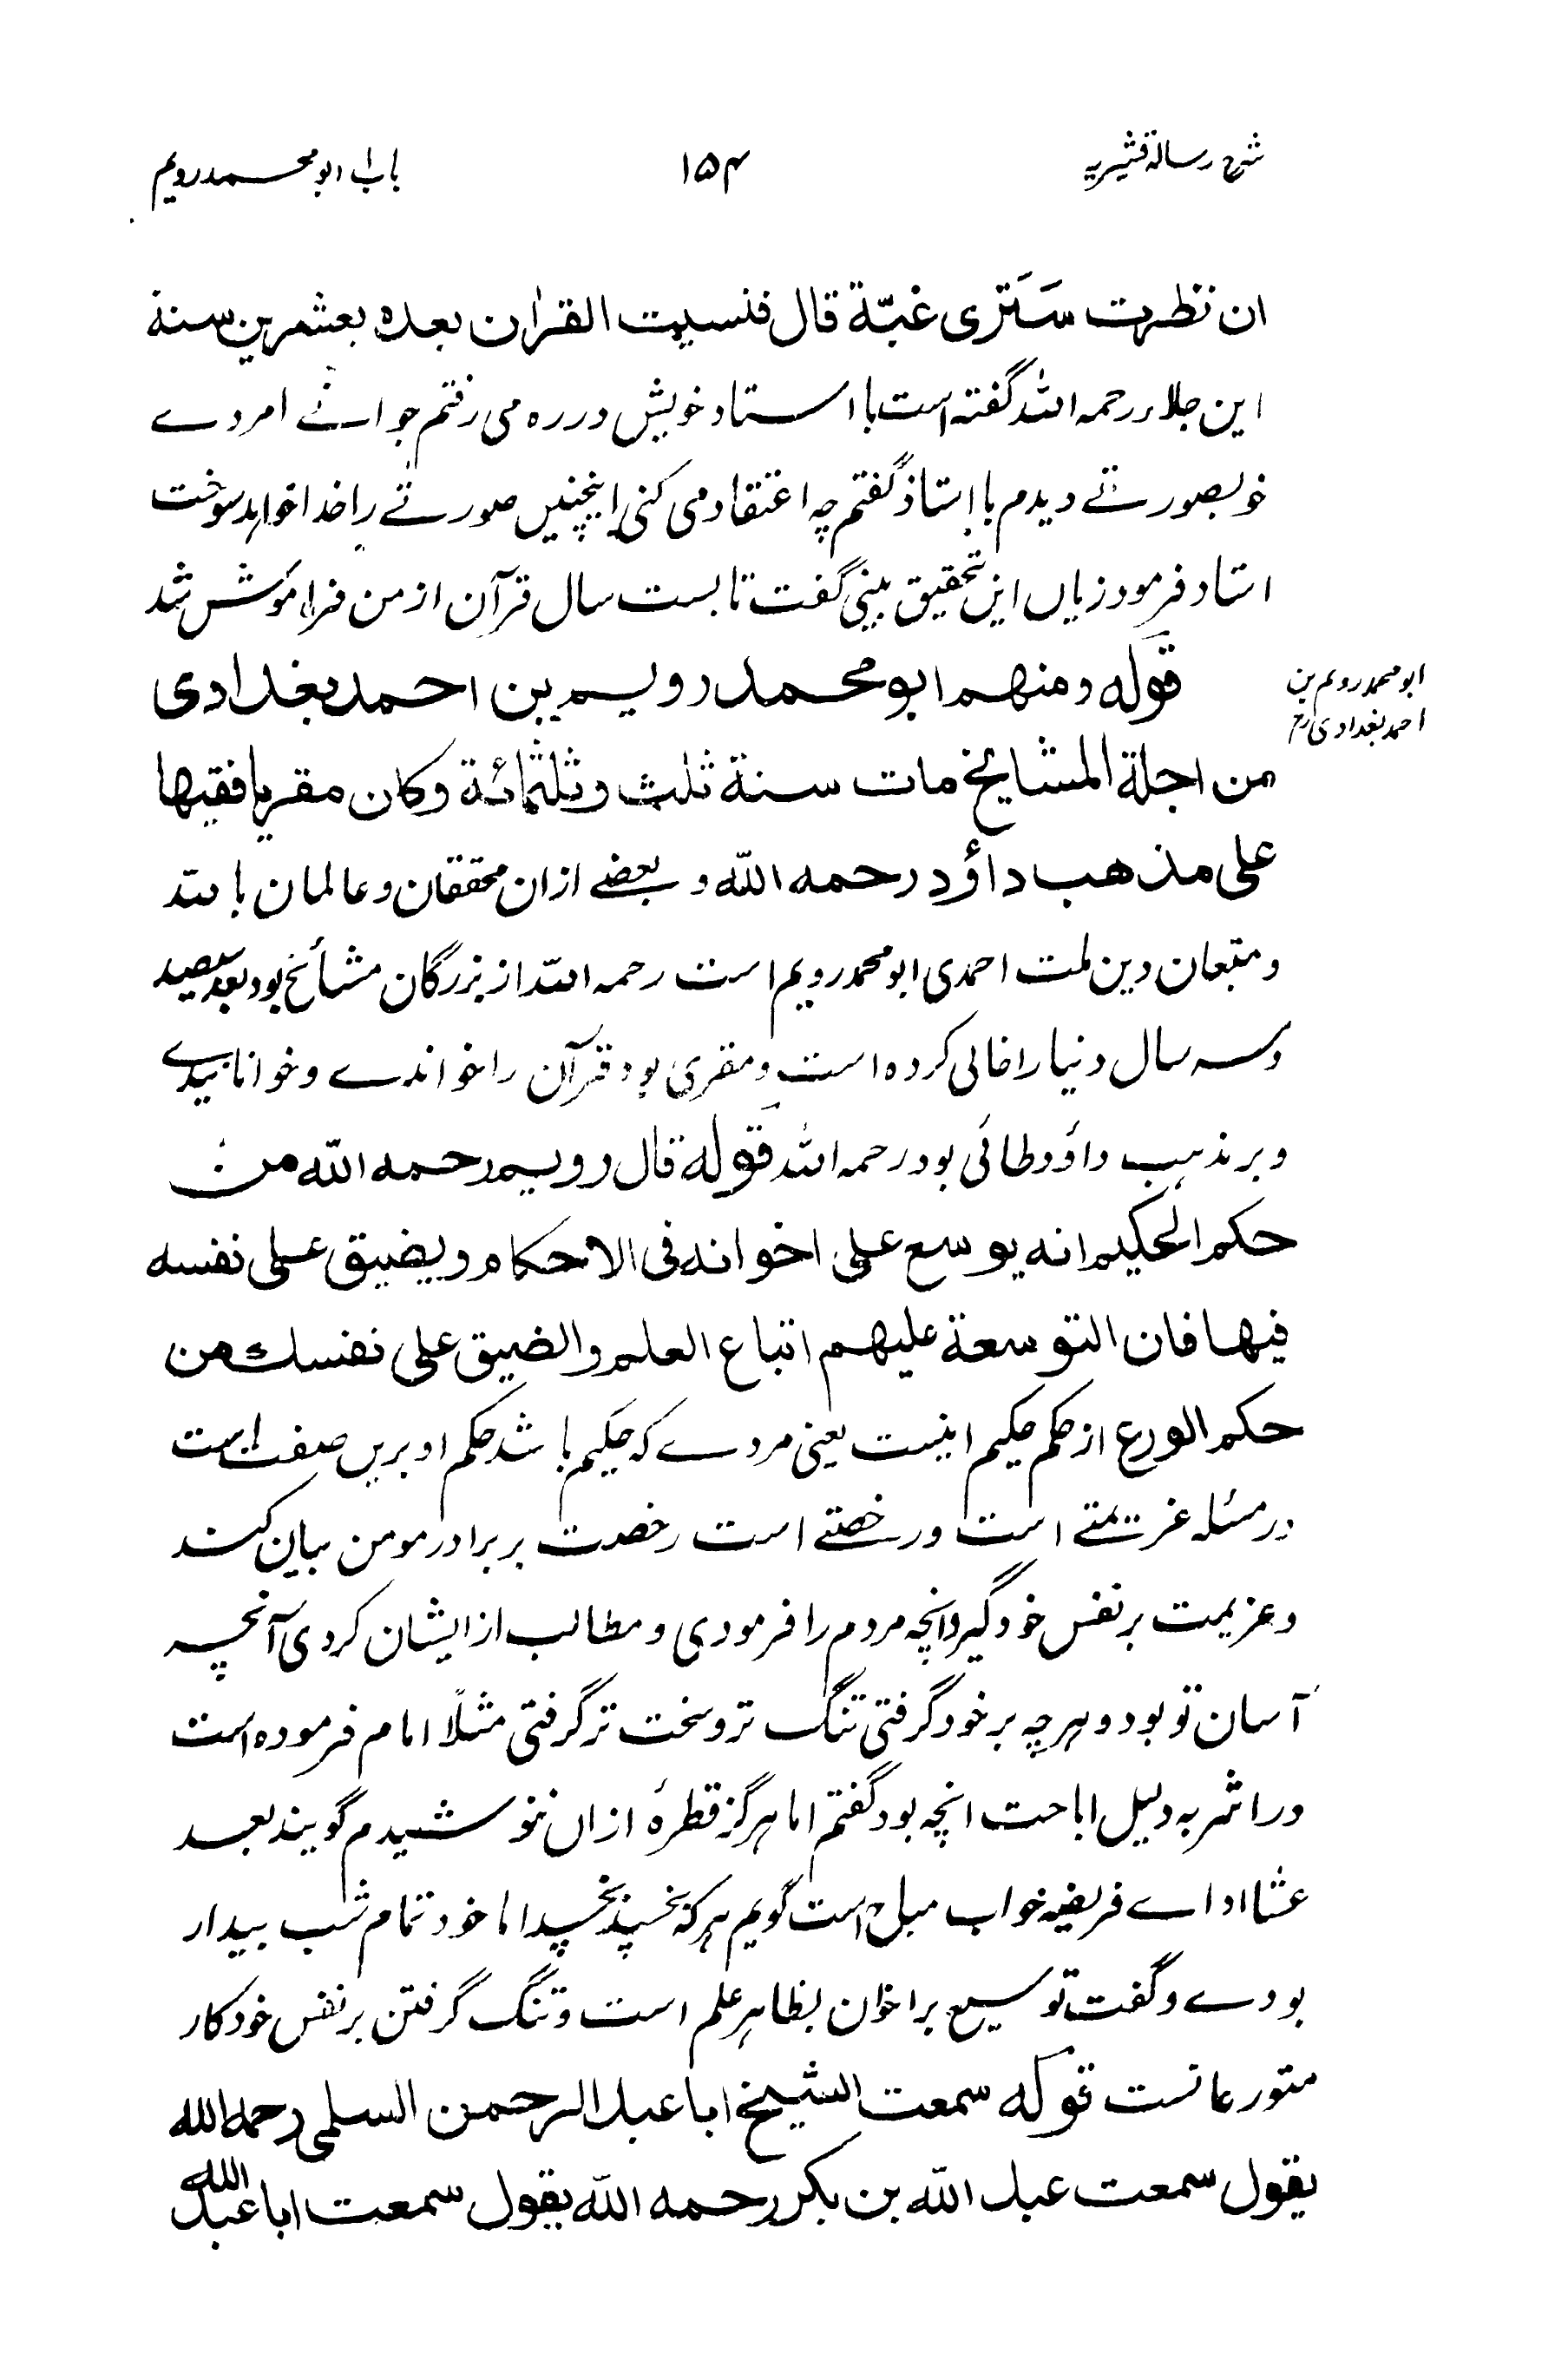 شرح رسالۀ قشیریہ
۱۵۴
باب ابو محمد رویم
ان نظرت سَتَری غبّة قال فنسیت القرٰان بعده بعشرین سنة
ابن جلاء رحمہ اللہ گفتہ است با استاد خویش در رہ می رفتم جوانے امردے
خوبصورتے دیدم با استاذ گفتم چہ اعتقاد می کنی اینچنیں صورتے را خدا خواہد سوخت
استاد فرمود زیاں ایں تحقیق بینی گفت تا بست سال قرآن از من فراموش شد
قوله ومنهم ابو محمد رویم بن احمد بغدادی
ابو محمد رویم بن
احمد بغدادی رح
من اجلة المشایخ مات سنة ثلث وثلثمائة وکان مقریا فقیها
علی مذهب داؤد رحمه اللّٰه و بعضے ازان محققان و عالمان باللہ
و متبعان دین ملت احمدی ابو محمد رویم است رحمہ اللہ از بزرگان مشائخ بود بعد سیصد
و سہ سال دنیا را خالی کردہ است و مقری بود قرآن را خواندے و خوانانیدے
و بر مذہب داؤد طائی بود رحمہ اللہ قوله قال رویم رحمه اللّٰه من
حکم الحکیم انه یوسع علی اخوانه فی الاحکام ویضیق علی نفسه
فیها فان التوسعة علیهم اتباع العلم والضیق علی نفسك من
حکم الورع از حکم حکیم اینست یعنی مردے کہ حکیم باشد حکم او بریں صفت است
در مسئلہ عزیمتے است و رخصتے است رخصت بر برادر مومن بیان کند
و عزیمت بر نفس خود گیرد انچہ مردم را فرمودی و مطالب از ایشان کردی آنچہ
آسان تو بود و ہرچہ بر خود گرفتی تنگ تر و سخت تر گرفتی مثلًا امام فرمودہ است
در اشربہ دلیل اباحت انچہ بود گفتم اما ہرگز قطرۂ ازاں ننوشیدم گویند بعد
عشا اداے فریضہ خواب مباح است گویم ہر کہ بخسپد بخسپد اما خود تمام شب بیدار
بودے و گفت توسیع بر اخوان بظاہر علم است و تنگ گرفتن بر نفس خود کار
متورعانست قوله سمعت الشیخ ابا عبد الرحمن السلمی رحمه الله
یقول سمعت عبد اللّٰه بن بکر رحمه اللّٰه یقول سمعت ابا عبد الله